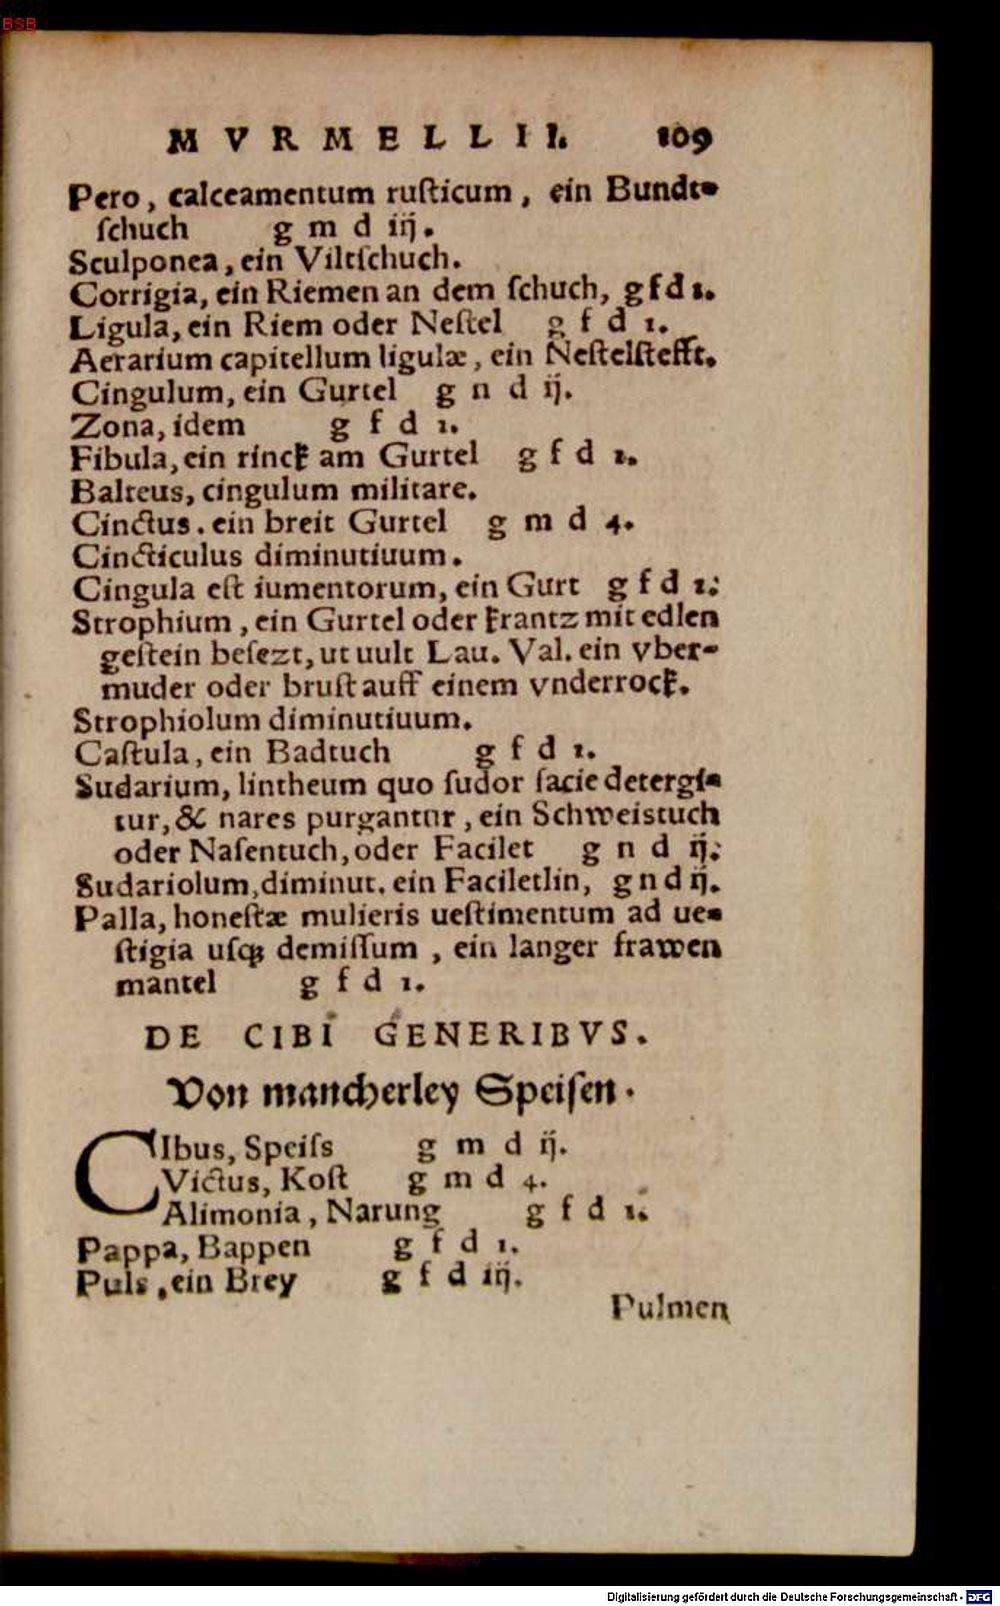 BSB
MVRMELLII. 109
Pero, calceamentum ruſticum, ein Bundt-
ſchuch g m d iij.
Sculponea, ein Viltſchuch.
Corrigia, ein Riemen an dem ſchuch, g f d 1.
Ligula, ein Riem oder Neſtel g f d 1.
Aerarium capitellum ligulæ, ein Neſtelſtefft.
Cingulum, ein Gurtel g n d ij.
Zona, idem g f d 1.
Fibula, ein rinck am Gurtel g f d 1.
Balteus, cingulum militare.
Cinctus. ein breit Gurtel g m d 4.
Cincticulus diminutiuum.
Cingula eſt iumentorum, ein Gurt g f d 1.
Strophium, ein Gurtel oder krantz mit edlen
geſtein beſezt, ut uult Lau. Val. ein vber-
muder oder bruſt auff einem vnderrock.
Strophiolum diminutiuum.
Caſtula, ein Badtuch g f d 1.
Sudarium, lintheum quo ſudor facie detergi-
tur, & nares purgantur, ein Schweistuch
oder Naſentuch, oder Facilet g n d ij.
Sudariolum, diminut. ein Faciletlin, g n d ij.
Palla, honeſtæ mulieris ueſtimentum ad ue-
ſtigia uſqꝫ demiſſum, ein langer frawen
mantel g f d 1.
DE CIBI GENERIBVS.
Von mancherley Speiſen.
CIbus, Speiſs g m d ij.
Victus, Koſt g m d 4.
Alimonia, Narung g f d 1.
Pappa, Bappen g f d 1.
Puls, ein Brey g f d iij.
Pulmen
Digitalisierung gefördert durch die Deutsche Forschungsgemeinschaft - DFG